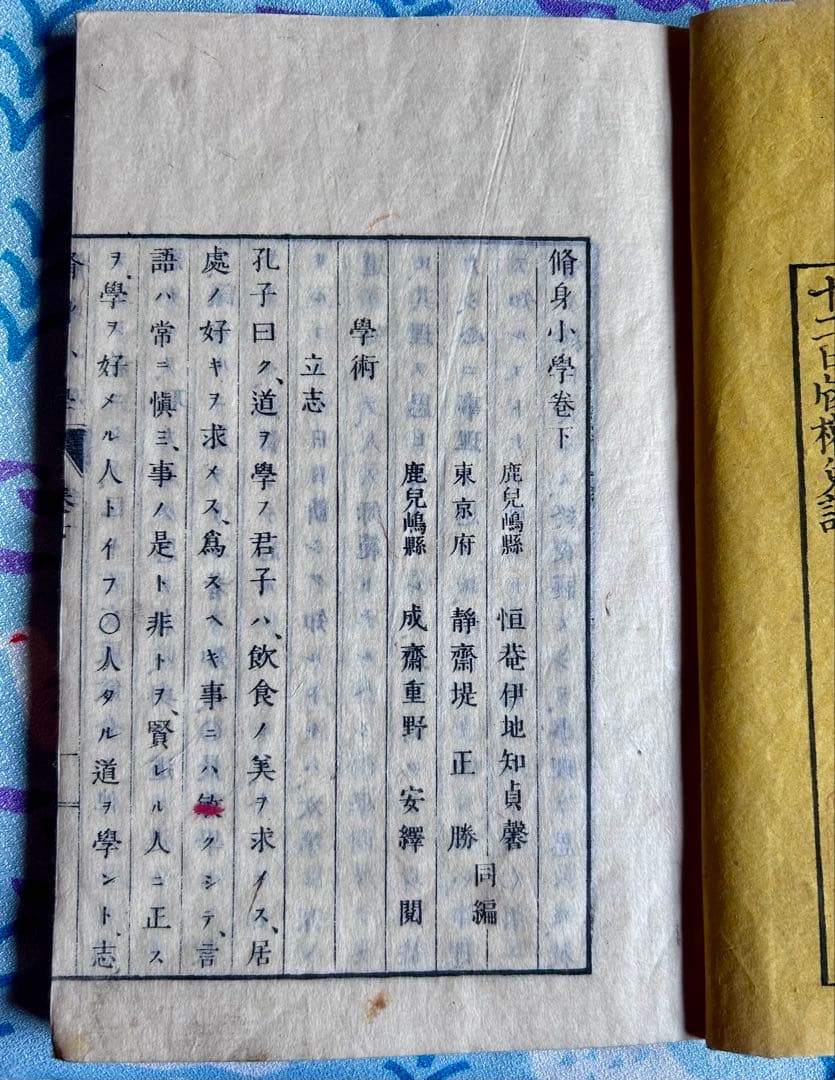 脩身小學卷下
鹿兒嶋縣　恒菴伊地知貞馨
東京府　靜齋堤　正　勝
同編
鹿兒嶋縣　成齋重野　安繹　閱
學術
立志
孔子曰ク、道ヲ學フ君子ハ、飲食ノ美ヲ求メス、居
處ノ好キヲ求メス、爲スヘキ事ニハ敏クシテ、言
語ハ常ニ愼ミ、事ノ是ト非トヲ、賢レル人ニ正ス
ヲ、學ヲ好メル人トイフ〇人タル道ヲ學ント、志